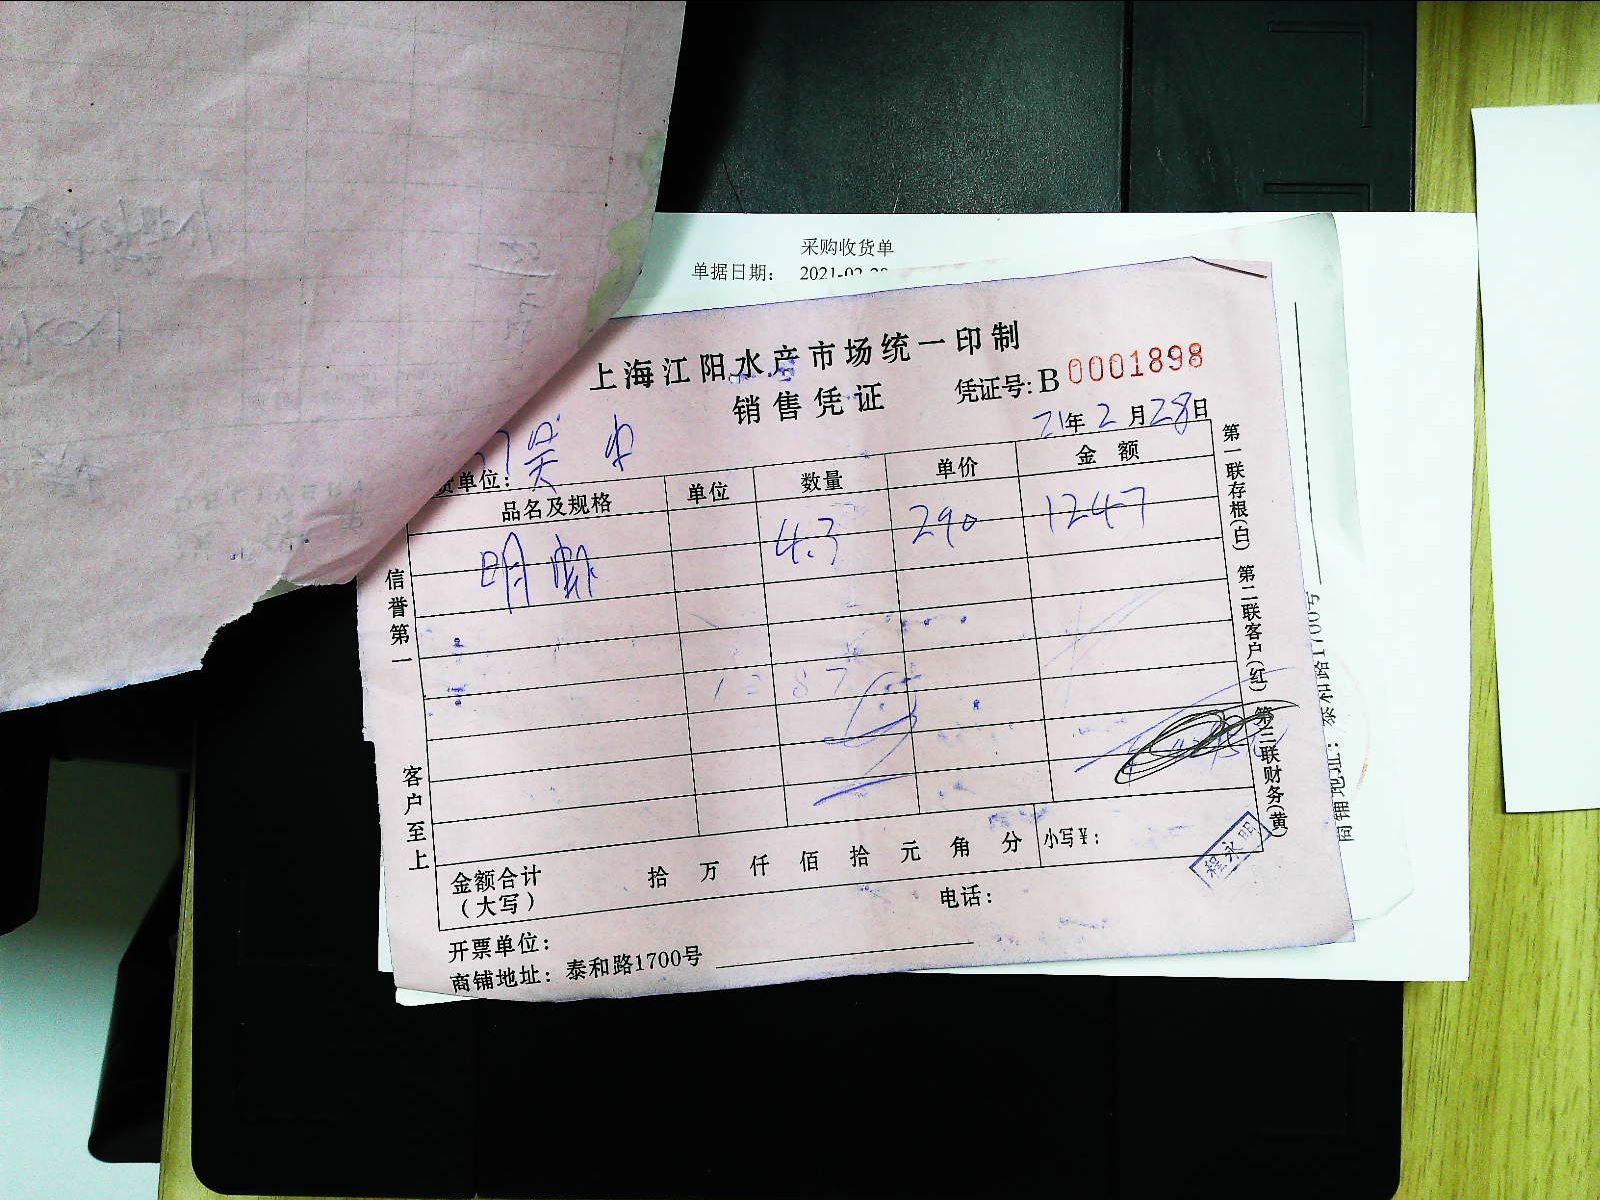 采购收货单
单据日期： 2021-02-28
上海江阳水产市场统一印制
销售凭证 凭证号: B 0001898
21年 2 月 28日
货单位： 吴中
品名及规格 单位 数量 单价 金额
明虾 4.3 290 1247
1287
信誉第一
客户至上
第一联存根(白) 第二联客户(红) 第三联财务(黄)
金额合计（大写） 拾 万 仟 佰 拾 元 角 分 小写￥：
程永明
开票单位： 电话：
商铺地址： 泰和路1700号
商铺地址： 泰和路1700号